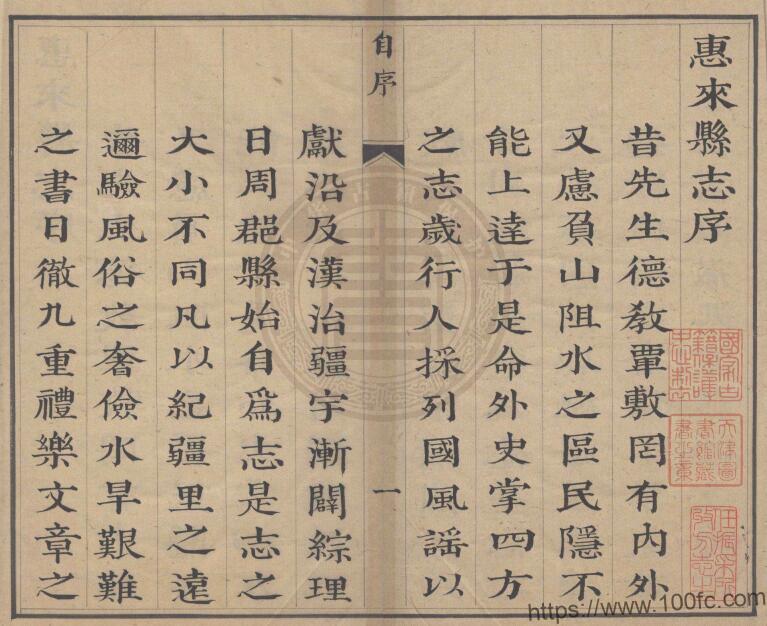 惠來縣志序
昔先生德教覃敷罔有内外
又慮負山阻水之區民隱不
能上達于是命外史掌四方
之志歲行人採列國風謡以
自序
一
獻沿及漢治疆宇漸闢綜理
日周郡縣始自為志是志之
大小不同凡以紀疆里之遠
邇驗風俗之奢儉水旱艱難
之書日徹九重禮樂文章之
https://www.100fc.com